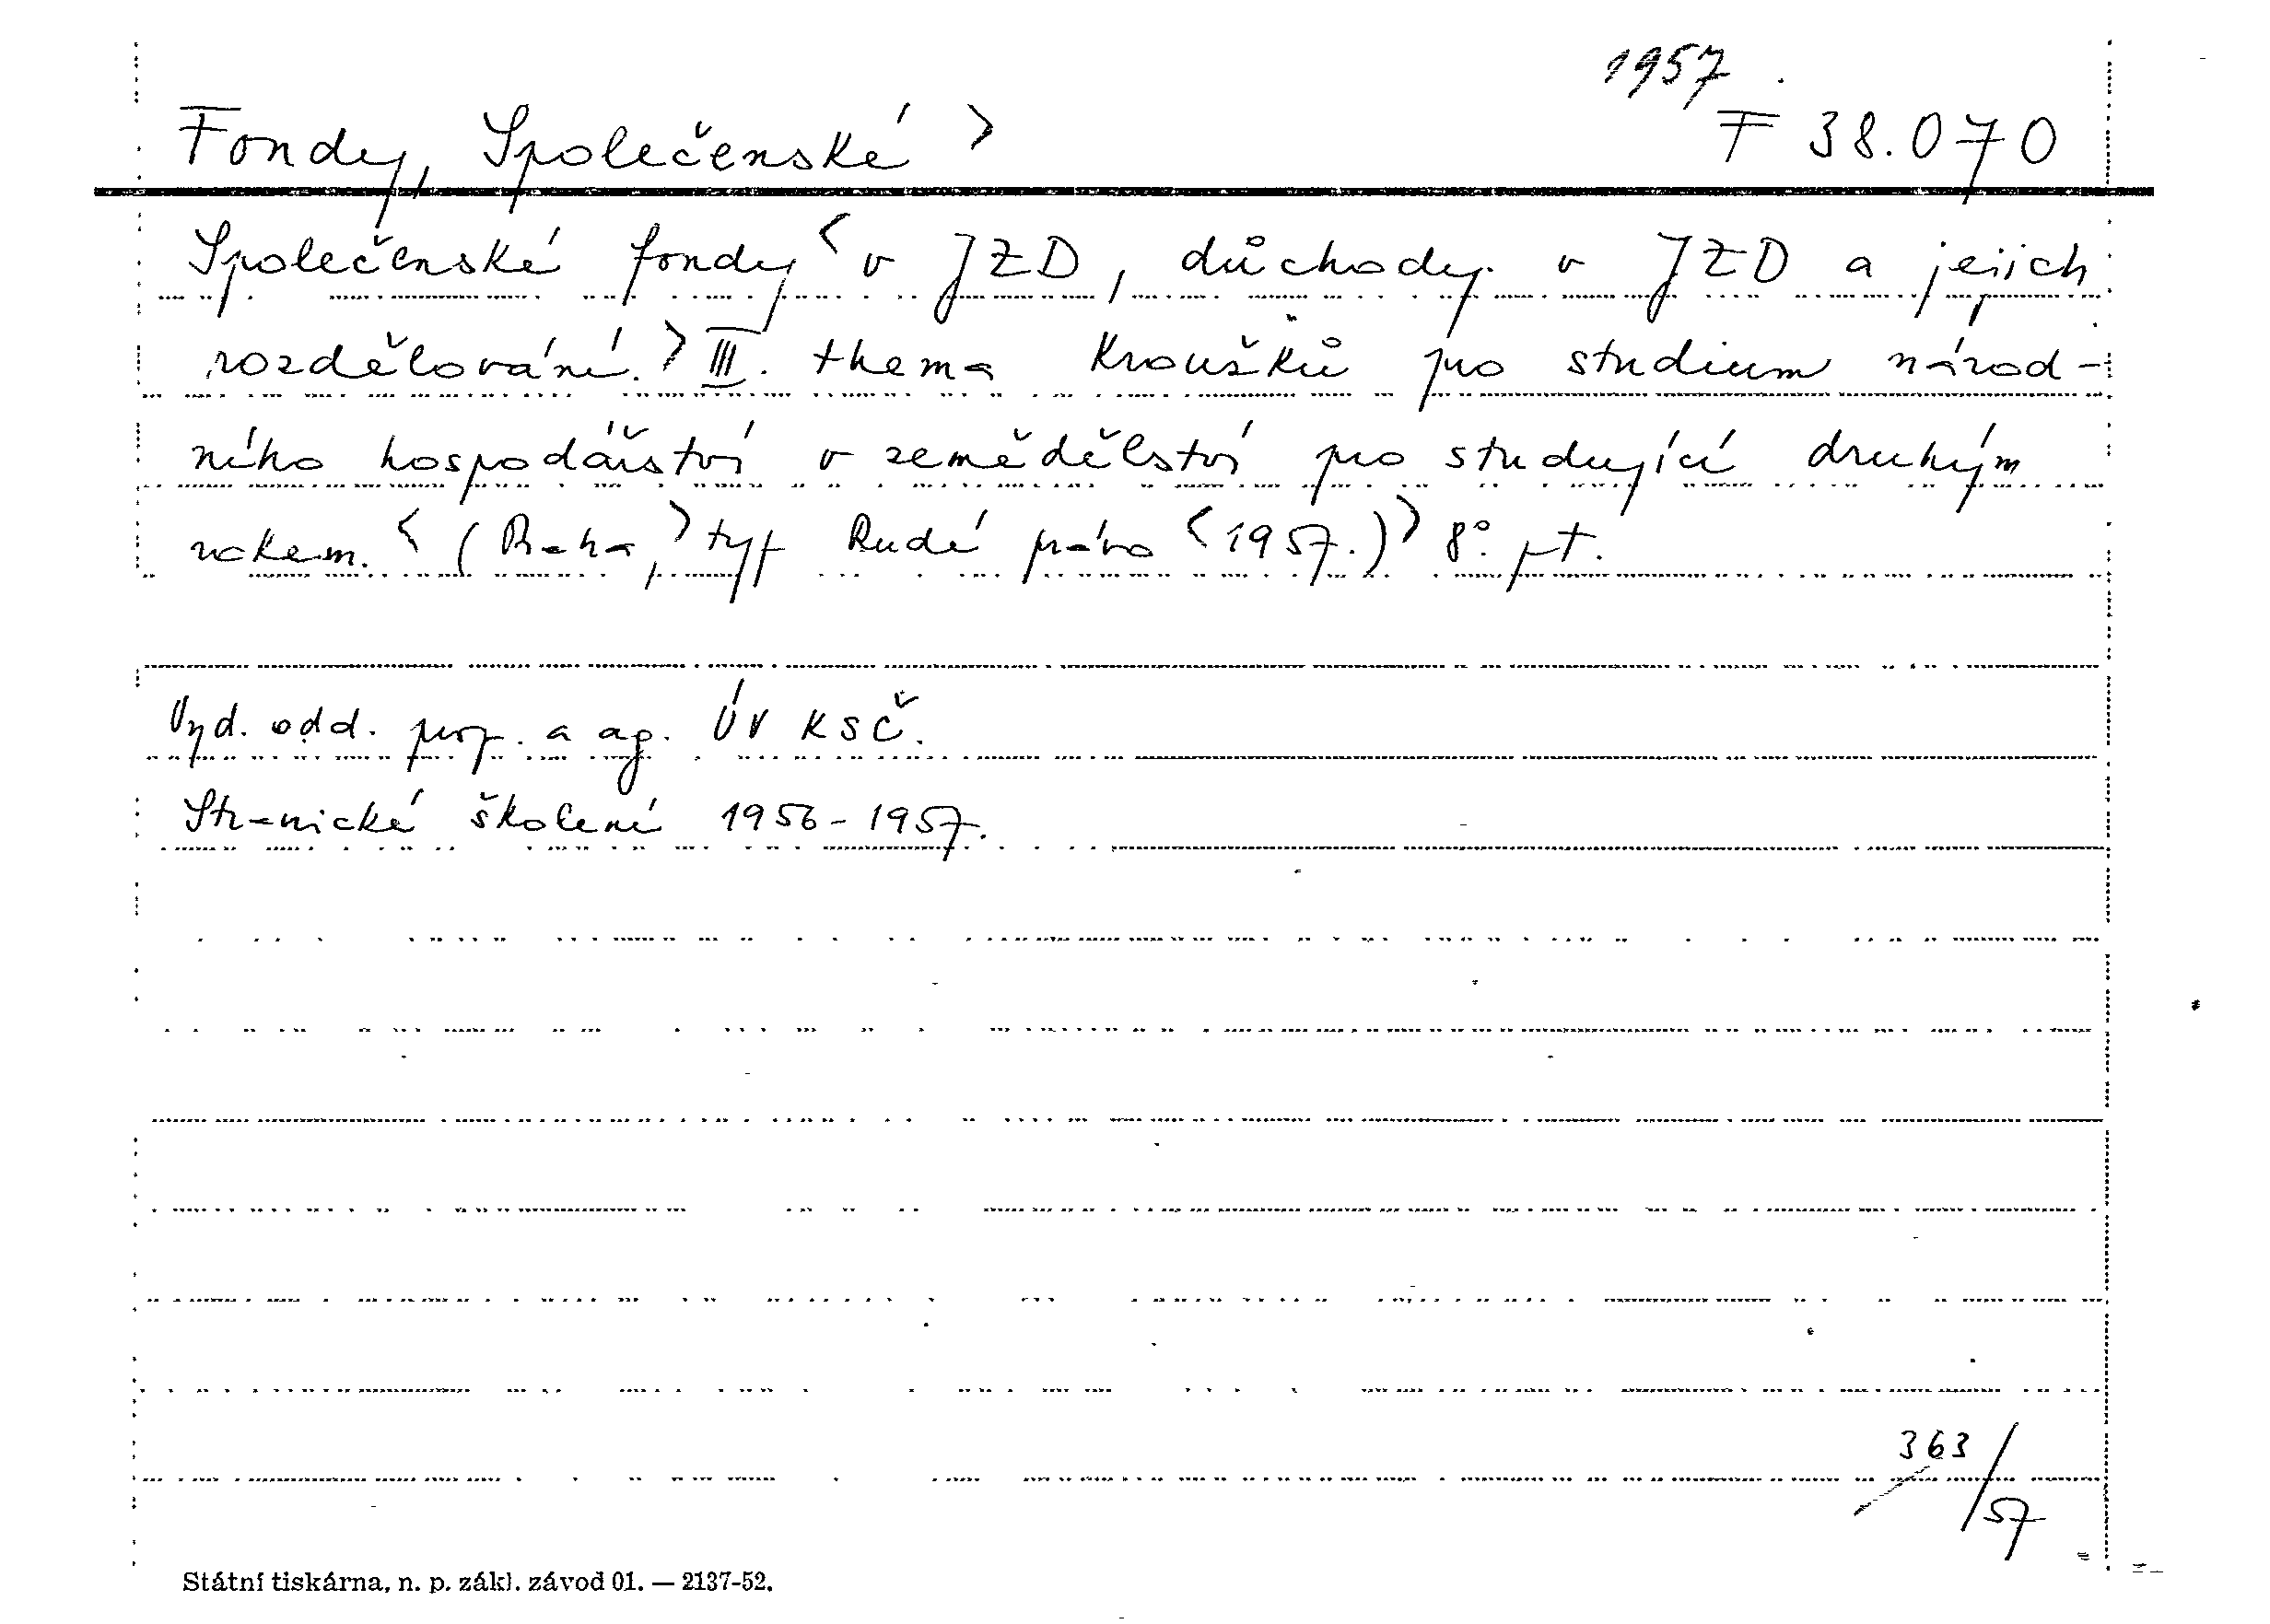 1957
Fondy, Společenské > F 38.070
Společenské fondy < v JZD, důchody v JZD a jejich
rozdělování. > III. thema kroužků pro studium národ-
ního hospodářství v zemědělství pro studující druhým
rokem. < (Praha, > typ Rudé právo < 1957.) > 8°. pt.
Vyd. odd. prop. a ag. ÚV KSČ.
Stranické školení 1956-1957.
363/57
Státní tiskárna, n. p. zákl. závod 01. — 2137-52.